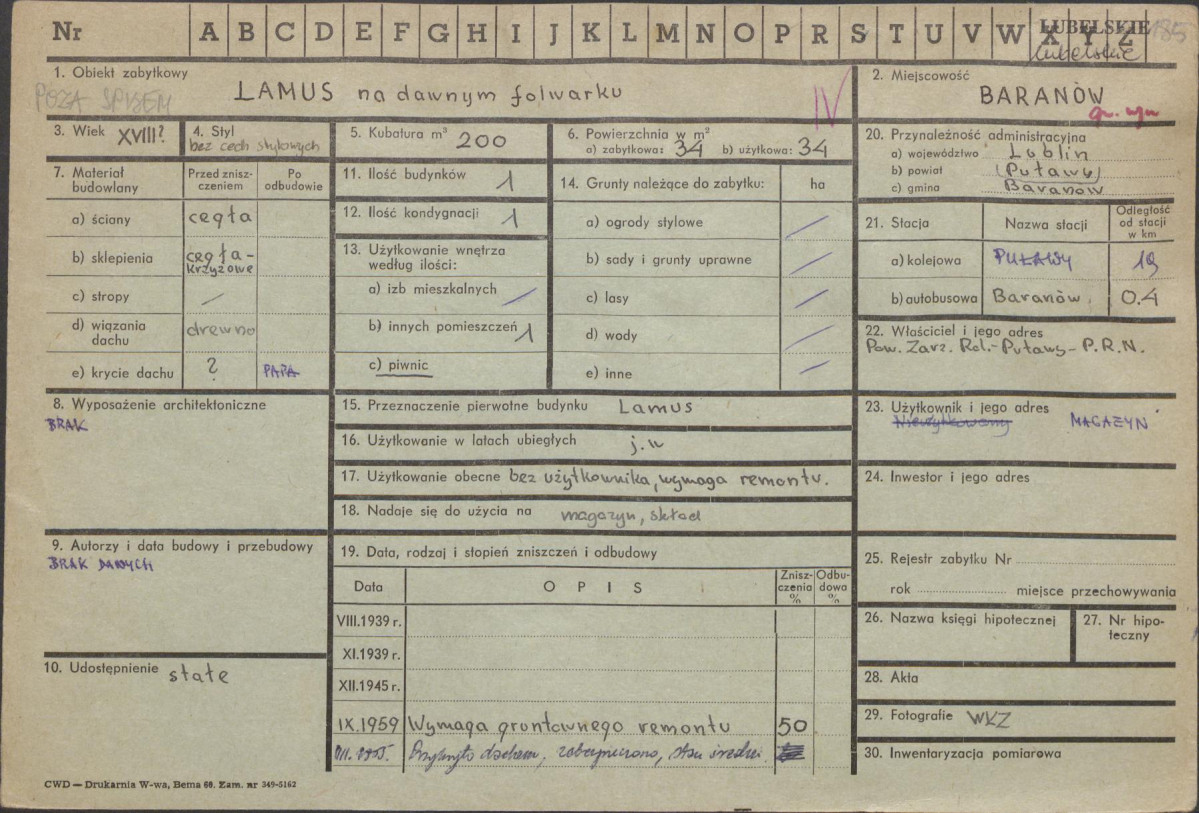 Nr A B C D E F G H I J K L M N O P R S T U V W X Y Z
LUBELSKIE
Lubelskie
185
1. Obiekt zabytkowy
POZA SPISEM
LAMUS na dawnym folwarku
IV
2. Miejscowość
BARANÓW
3. Wiek XVIII?
4. Styl
bez cech stylowych
5. Kubatura m³ 200
6. Powierzchnia w m²
a) zabytkowa: 34 b) użytkowa: 34
7. Materiał budowlany
Przed zniszczeniem
Po odbudowie
a) ściany cegła
b) sklepienia cegła - krzyżowe
c) stropy /
d) wiązania dachu drewno
e) krycie dachu ? PAPA
8. Wyposażenie architektoniczne
BRAK
9. Autorzy i data budowy i przebudowy
BRAK DANYCH
10. Udostępnienie stałe
11. Ilość budynków 1
12. Ilość kondygnacji 1
13. Użytkowanie wnętrza
według ilości:
a) izb mieszkalnych /
b) innych pomieszczeń 1
c) piwnic
14. Grunty należące do zabytku: ha
a) ogrody stylowe /
b) sady i grunty uprawne /
c) lasy /
d) wody /
e) inne /
15. Przeznaczenie pierwotne budynku Lamus
16. Użytkowanie w latach ubiegłych j.w
17. Użytkowanie obecne bez użytkownika, wymaga remontu.
18. Nadaje się do użycia na magazyn, skład
19. Data, rodzaj i stopień zniszczeń i odbudowy
Data OPIS Zniszczenia % Odbudowa %
VIII.1939 r.
XI.1939 r.
XII.1945 r.
IX.1959 Wymaga gruntownego remontu 50
Przykryto dachem, zabezpieczono, stan średni.
20. Przynależność administracyjna
a) województwo Lublin
b) powiat (Puławy)
c) gmina Baranów
21. Stacja Nazwa stacji Odległość od stacji w km
a) kolejowa PUŁAWY 19
b) autobusowa Baranów. 0.4
22. Właściciel i jego adres
Pow. Zarz. Rol.- Puławy - P.R.N.
23. Użytkownik i jego adres
Nieużytkowany MAGAZYN
24. Inwestor i jego adres
25. Rejestr zabytku Nr
rok miejsce przechowywania
26. Nazwa księgi hipotecznej
27. Nr hipoteczny
28. Akta
29. Fotografie WKZ
30. Inwentaryzacja pomiarowa
CWD — Drukarnia W-wa, Bema 60. Zam. nr 349-5162